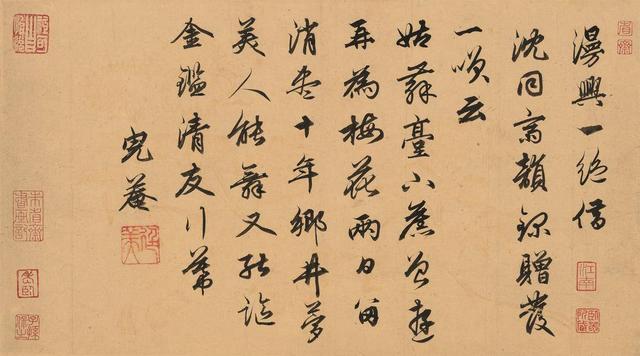 漫興一絕借
沈同齋韻錄贈發
一咲云
姑蘇臺下舊曾遊
再為梅花兩日留
消盡十年鄉井夢
美人能舞又能謳
金鑑清友行
完菴